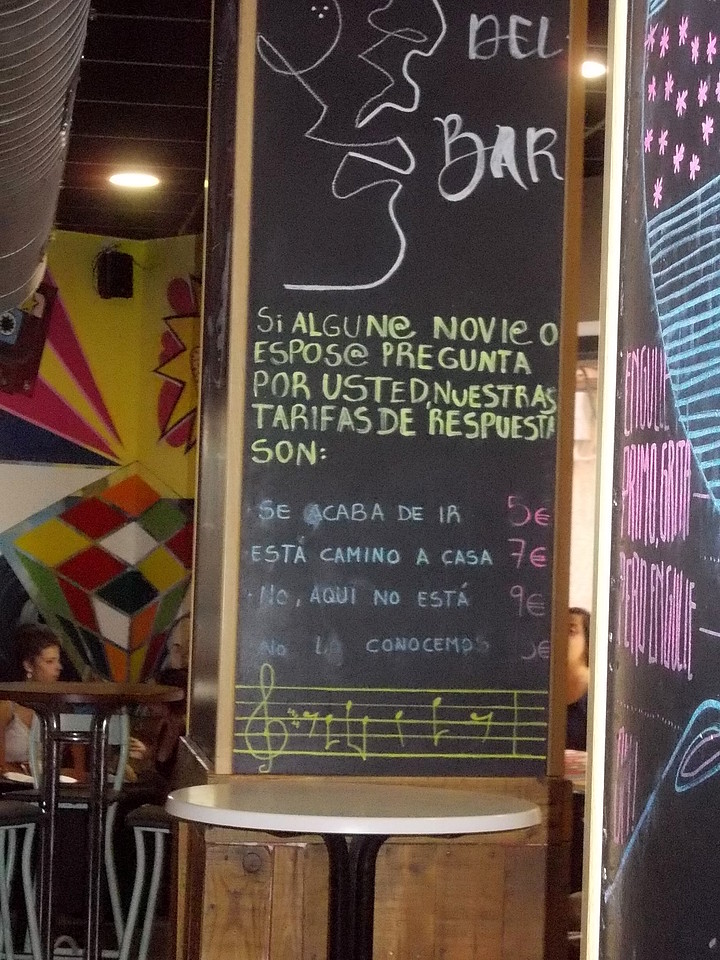 DEL
BAR
Si ALGUN@ NOVIO O
ESPOS@ PREGUNTA
POR USTED, NUESTRAS
TARIFAS DE RESPUESTA
SON:
SE ACABA DE IR 5€
ESTÁ CAMINO A CASA 7€
NO, AQUI NO ESTÁ 9€
NO CONOCEMOS €
ENGULLE